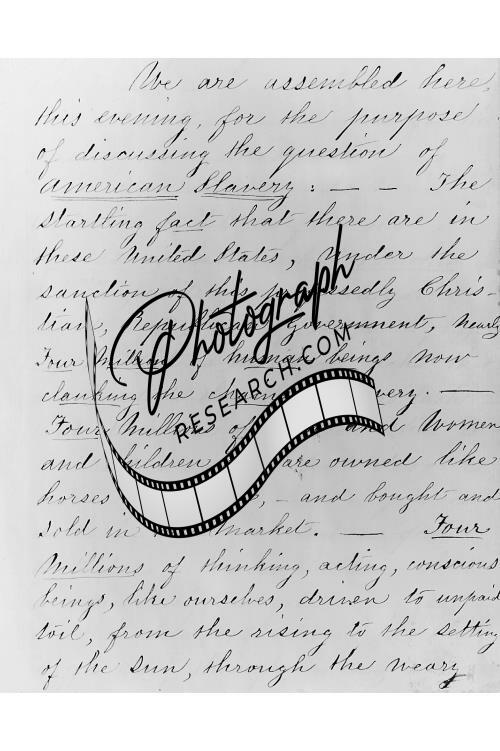 We are assembled here,
this evening, for the purpose
of discussing the question of
American Slavery : — — The
startling fact that there are in
these United States, under the
sanction of this Chris-
tian, Republican Government, nearly
Four Million of human beings now
clanking the —
Four Million of and Women
and children are owned like
horses , - and bought and
sold in market. — Four
Millions of thinking, acting, conscious
beings, like ourselves, driven to unpaid
toil, from the rising to the setting
of the sun, through the weary
Photograph
RESEARCH.COM